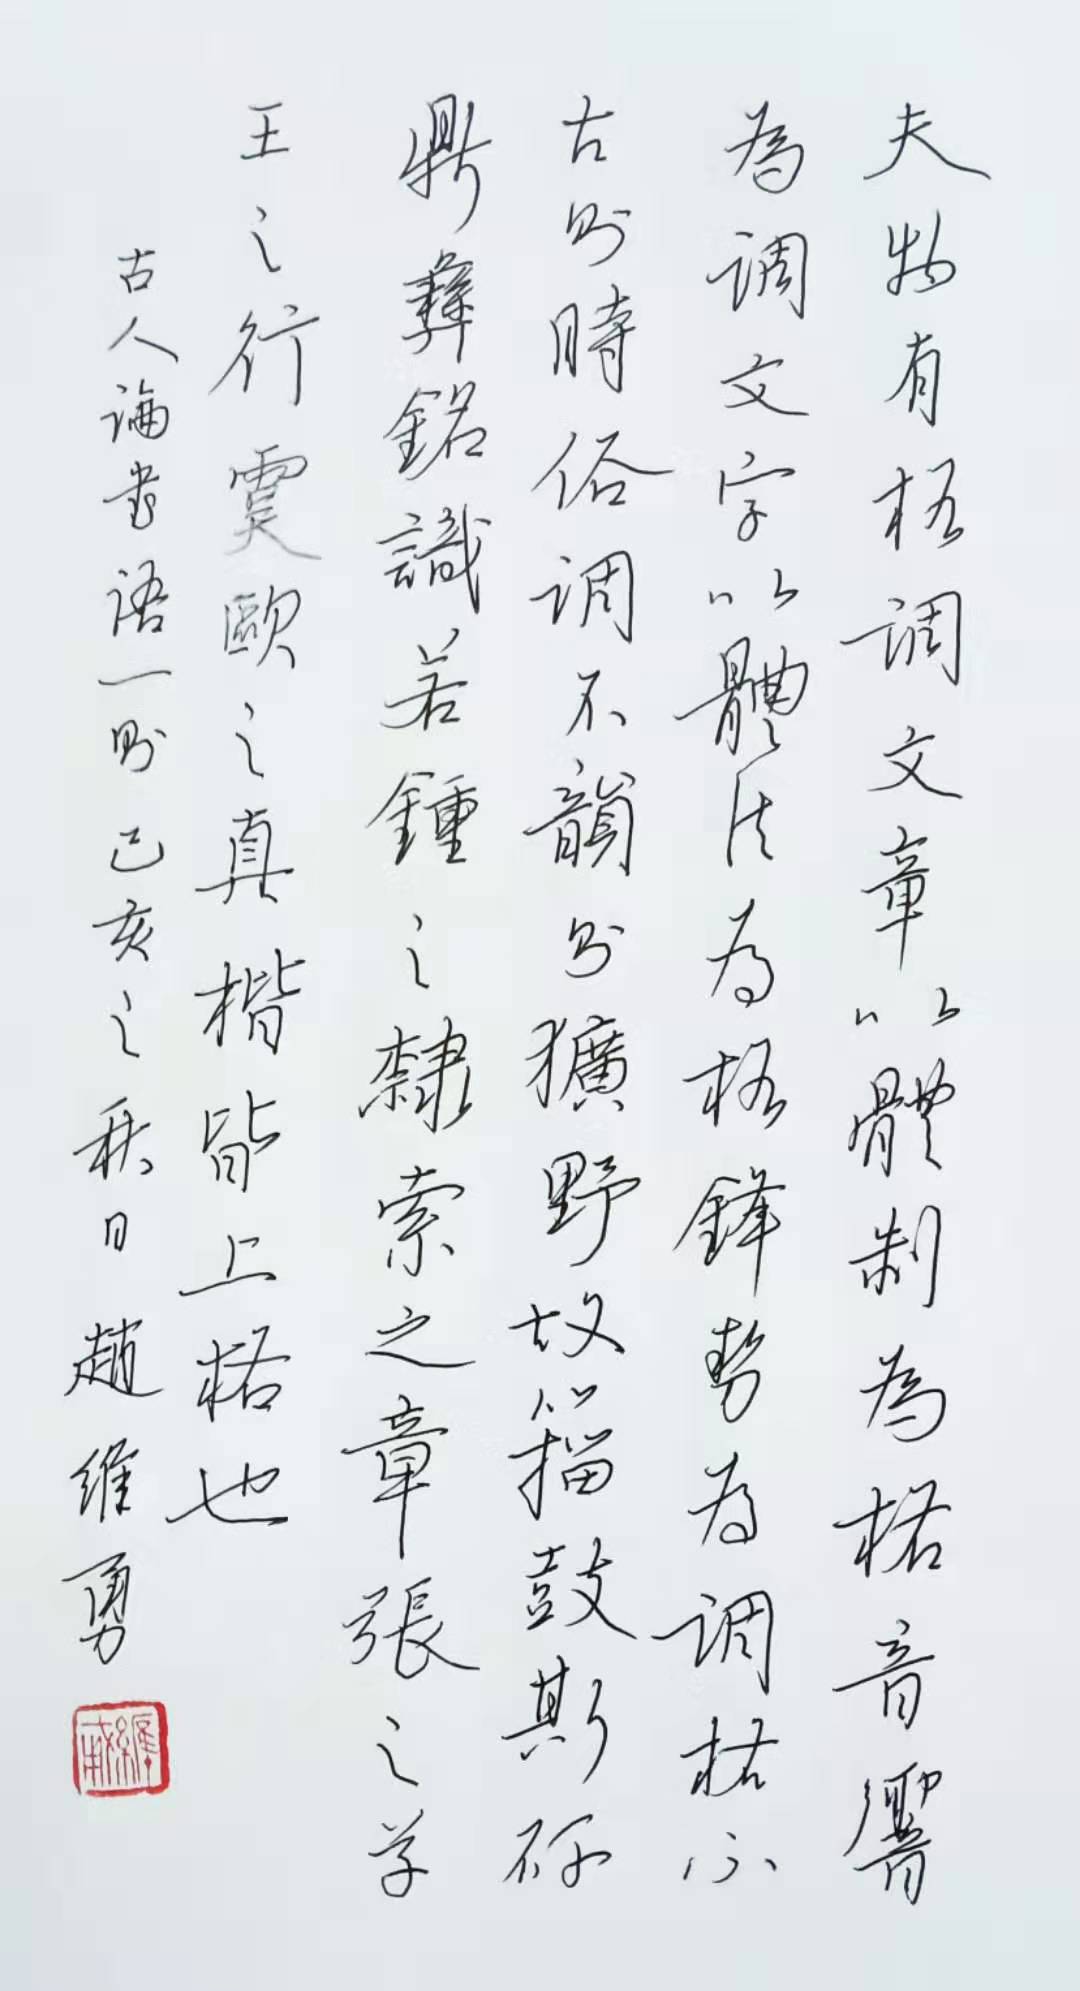 夫物有格调文章以體制為格音響
為调文字以體法为格鋒势为调格不
古则時俗调不韻则獷野故籀鼓斯碑
鼎彝銘識若鍾之隸索之章張之草
王之行虞歐之真楷皆上格也
古人論书语一则己亥之秋日趙維勇